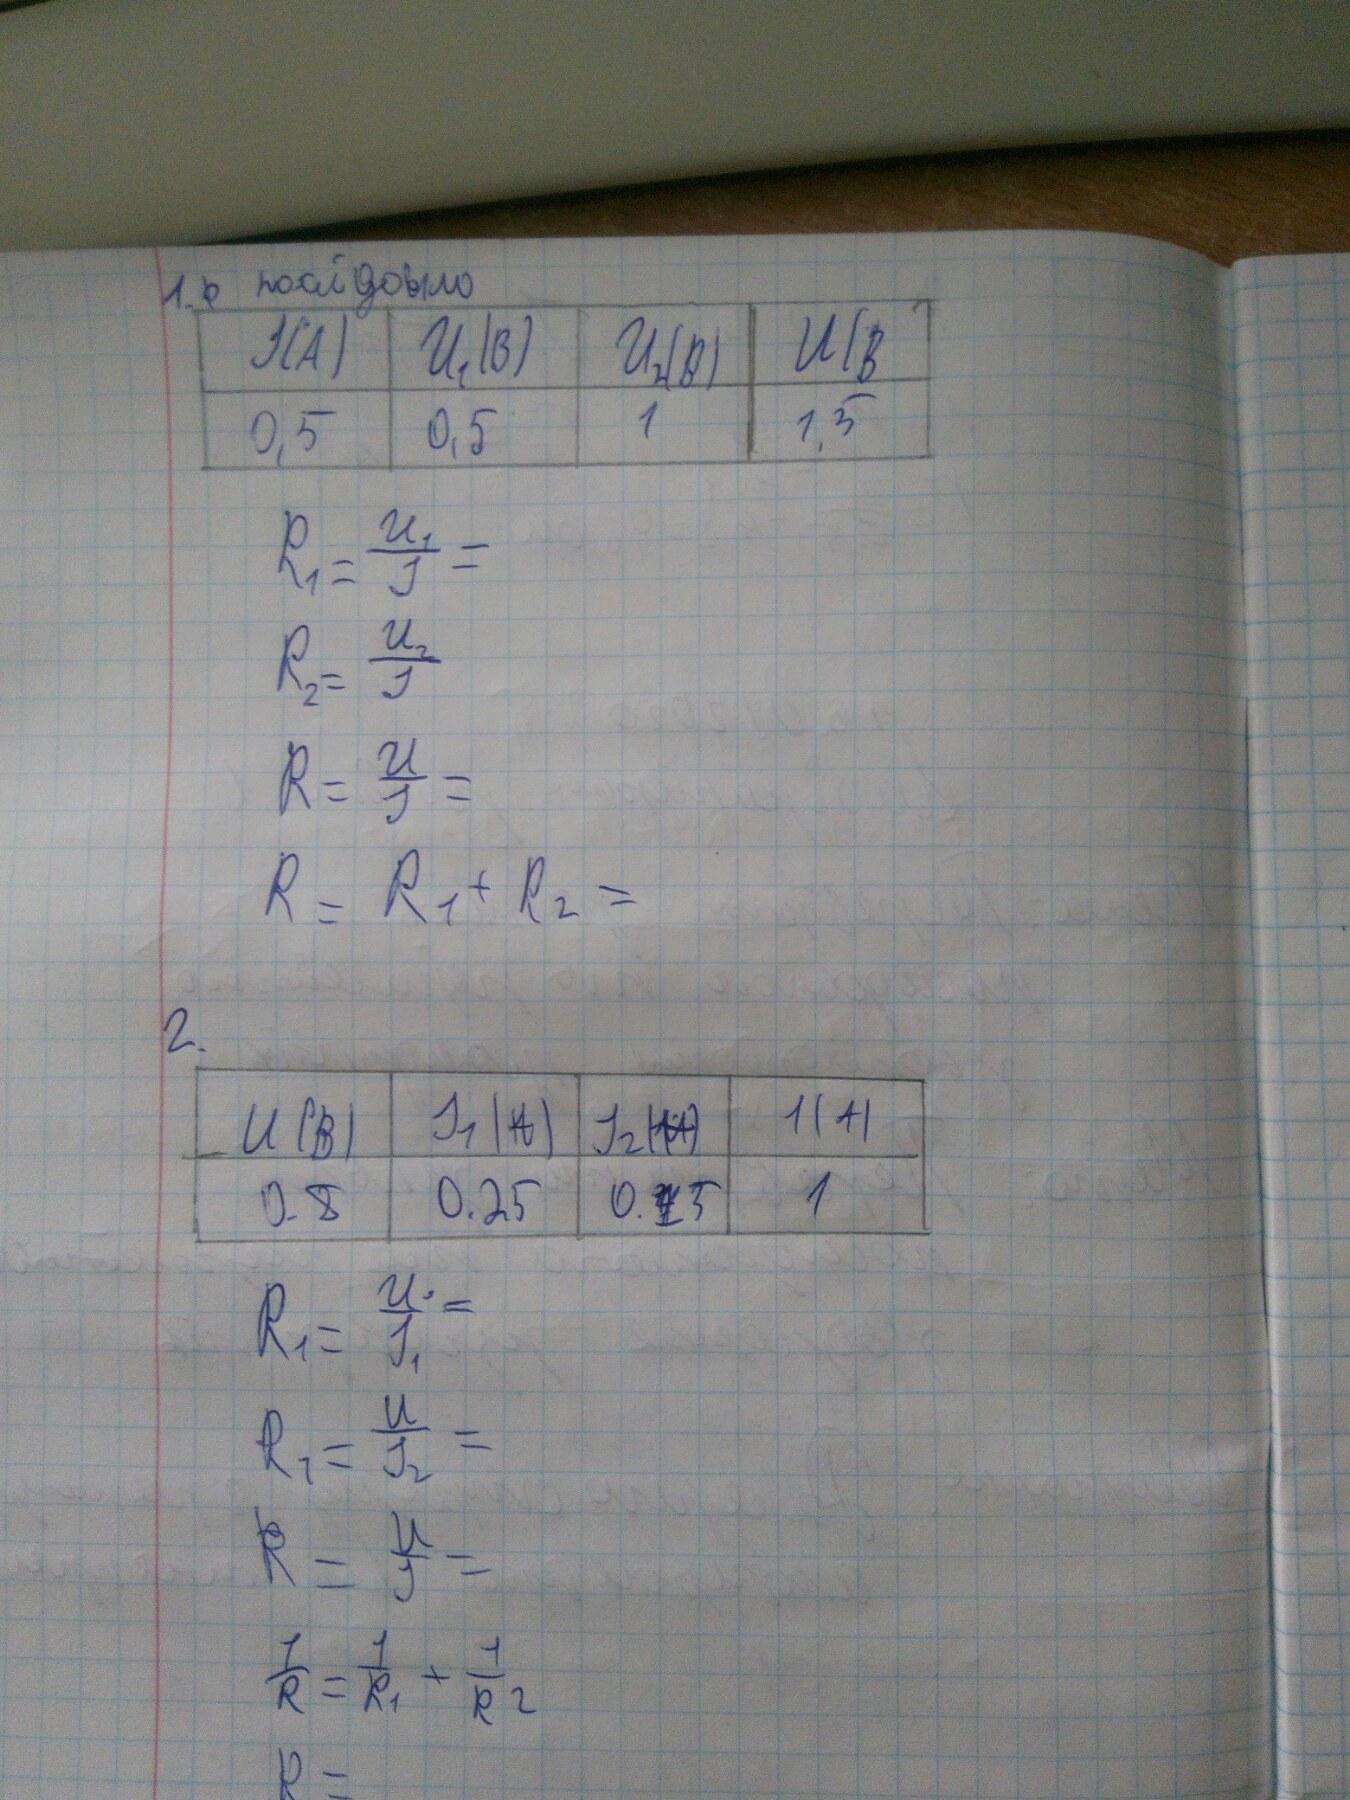 1.
I(A) U₁(В) U₂(В) U(В
0,5 0,5 1 1,5
R₁ = U₁/I =
R₂ = U₂/I
R = U/I =
R = R₁ + R₂ =
2.
U(В) I₁(A) I₂(A) I(A)
0.8 0.25 1
R₁ = U/I₁ =
R₂ = U/I₂ =
R = U/I =
1/R = 1/R₁ + 1/R₂
R =